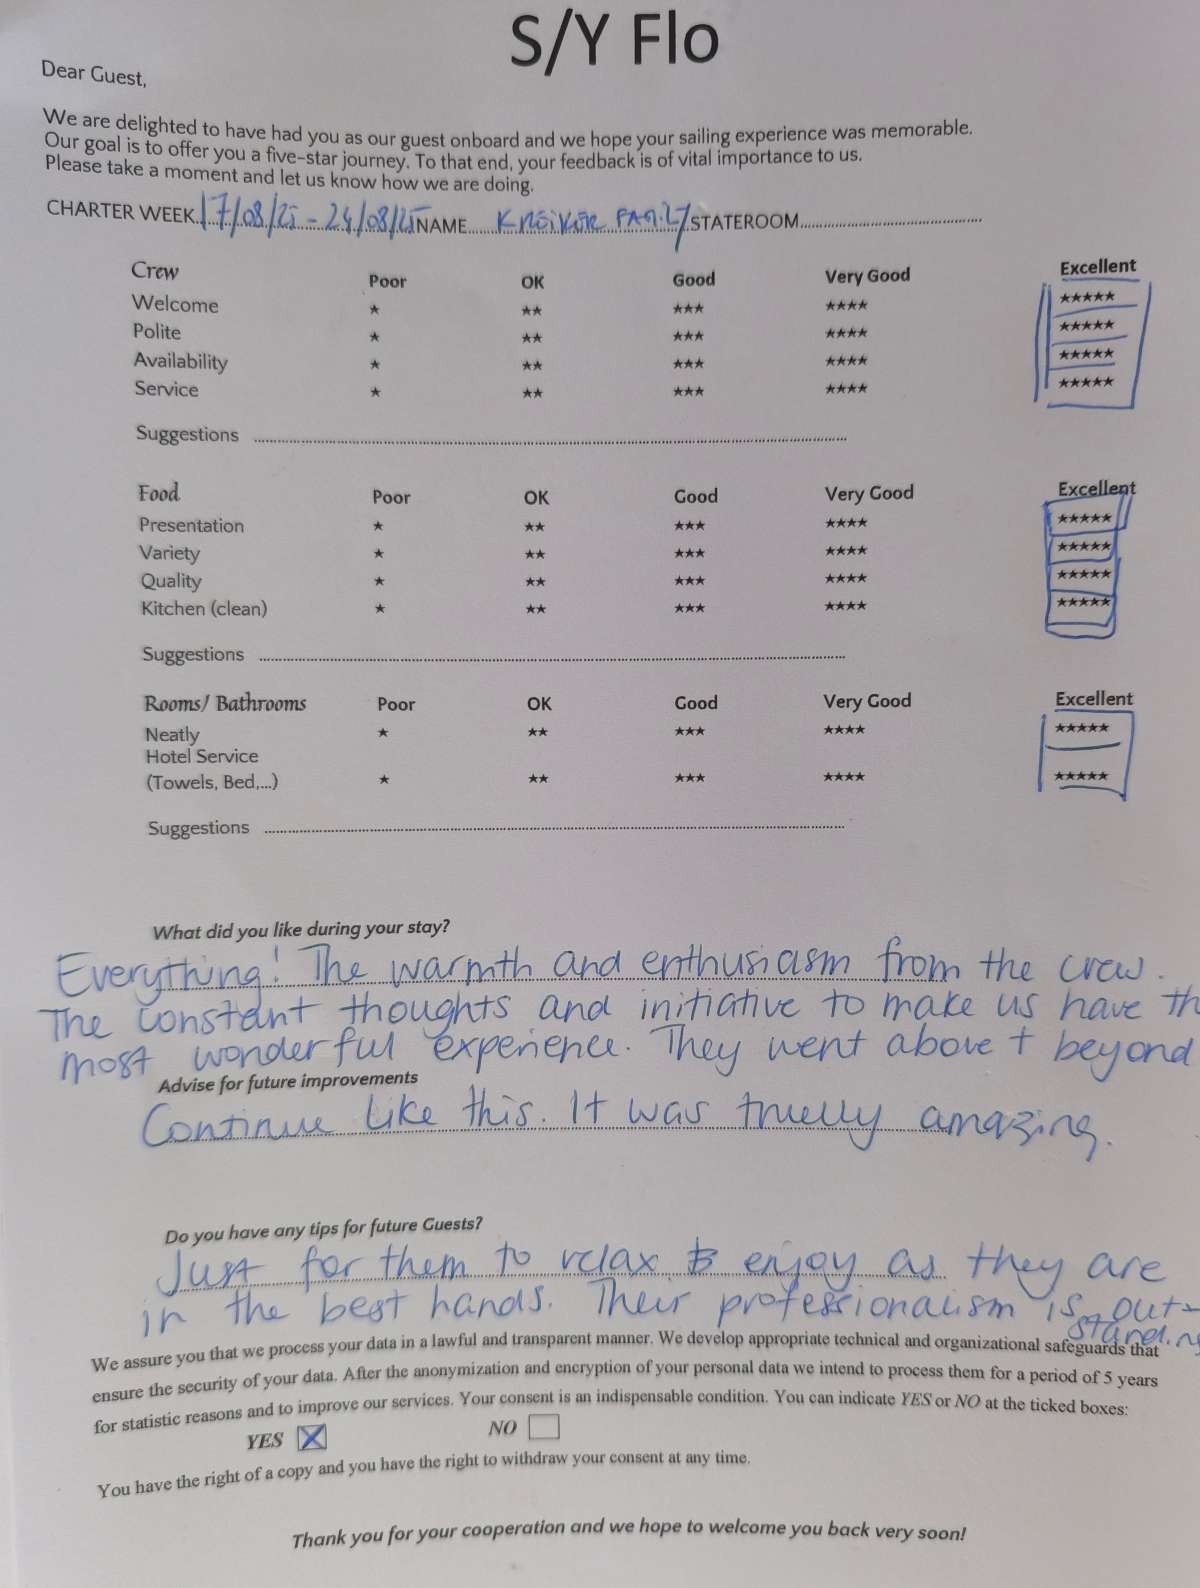 S/Y Flo
Dear Guest,
We are delighted to have had you as our guest onboard and we hope your sailing experience was memorable.
Our goal is to offer you a five-star journey. To that end, your feedback is of vital importance to us.
Please take a moment and let us know how we are doing.
CHARTER WEEK 17/08/25 - 24/08/25 NAME FAMILY STATEROOM
Crew Poor OK Good Very Good Excellent
Welcome ★ ★★ ★★★ ★★★★ ★★★★★
Polite ★ ★★ ★★★ ★★★★ ★★★★★
Availability ★ ★★ ★★★ ★★★★ ★★★★★
Service ★ ★★ ★★★ ★★★★ ★★★★★
Suggestions
Food Poor OK Good Very Good Excellent
Presentation ★ ★★ ★★★ ★★★★ ★★★★★
Variety ★ ★★ ★★★ ★★★★ ★★★★★
Quality ★ ★★ ★★★ ★★★★ ★★★★★
Kitchen (clean) ★ ★★ ★★★ ★★★★ ★★★★★
Suggestions
Rooms/ Bathrooms Poor OK Good Very Good Excellent
Neatly ★ ★★ ★★★ ★★★★ ★★★★★
Hotel Service
(Towels, Bed,...) ★ ★★ ★★★ ★★★★ ★★★★★
Suggestions
What did you like during your stay?
Everything! The warmth and enthusiasm from the crew.
The constant thoughts and initiative to make us have th
most wonderful experience. They went above + beyond
Advise for future improvements
Continue like this. It was truely amazing.
Do you have any tips for future Guests?
Just for them to relax & enjoy as they are
in the best hands. Their professionalism is out-
standing
We assure you that we process your data in a lawful and transparent manner. We develop appropriate technical and organizational safeguards that
ensure the security of your data. After the anonymization and encryption of your personal data we intend to process them for a period of 5 years
for statistic reasons and to improve our services. Your consent is an indispensable condition. You can indicate YES or NO at the ticked boxes:
YES X NO
You have the right of a copy and you have the right to withdraw your consent at any time.
Thank you for your cooperation and we hope to welcome you back very soon!